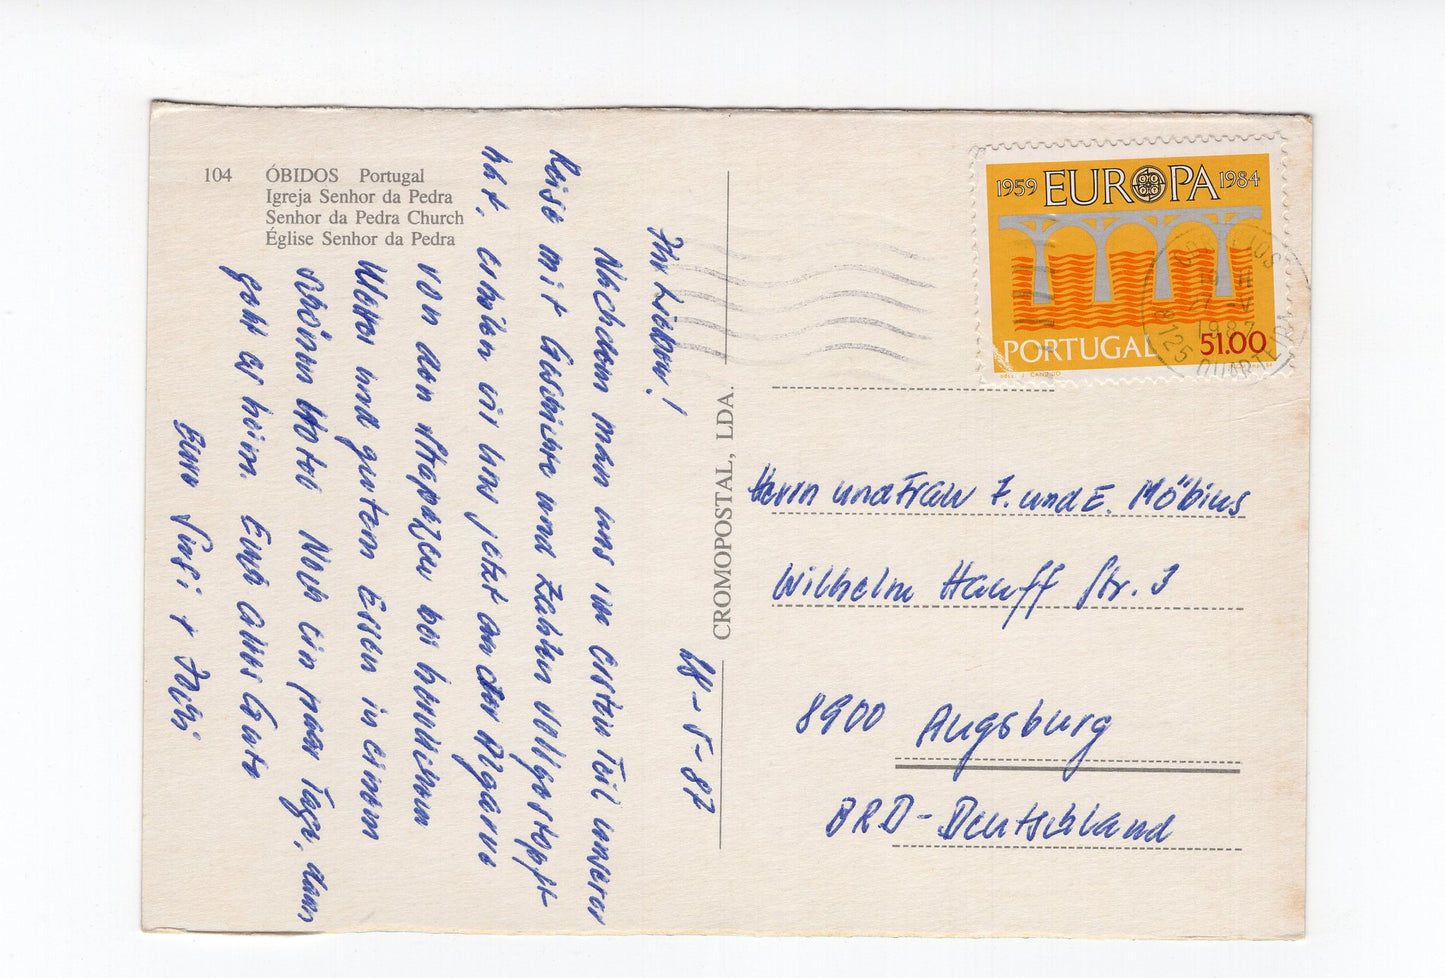 104 ÓBIDOS Portugal
Igreja Senhor da Pedra
Senhor da Pedra Church
Église Senhor da Pedra
-5-87
Ihr Lieben!
Nachdem man uns im ersten Teil unserer
Reise mit Geschichte und Zahlen vollgestopft
hat, erholen wir uns jetzt an der Algarve
von den Strapazen bei herrlichem
Wetter und gutem Essen in einem
schönen Hotel Noch ein paar Tage, dann
geht es heim. Euch alles Gute
Eure
CROMOPOSTAL, LDA.
1959 EUROPA 1984
PORTUGAL 51.00
1987
8125 QUARTEIRA
Herrn und Frau F. und E. Möbius
Wilhelm Hauff Str. 3
8900 Augsburg
BRD-Deutschland